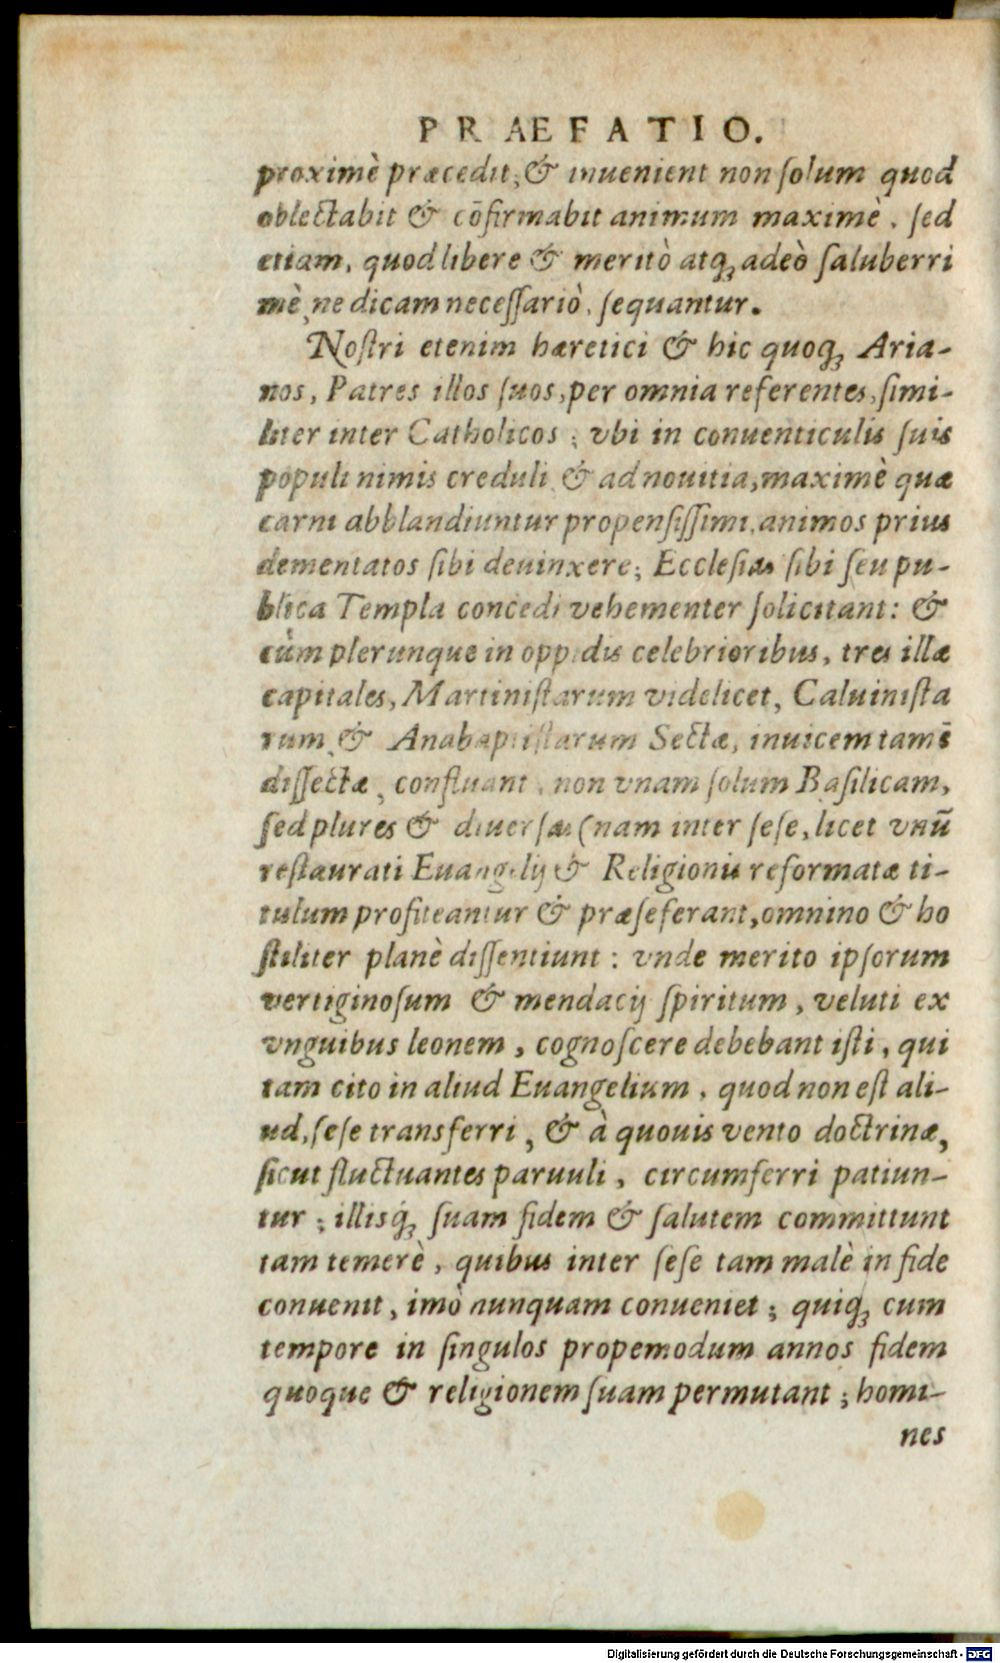 PRAEFATIO.
proximè præcedit; & inuenient non ſolum quod
oblectabit & cōfirmabit animum maximè, ſed
etiam, quod libere & meritò atq́; adeò ſaluberri
mè, ne dicam neceſſariò, ſequantur.
Noſtri etenim hæretici & hic quoq; Aria-
nos, Patres illos ſuos, per omnia referentes, ſimi-
liter inter Catholicos; vbi in conuenticulis ſuis
populi nimis creduli & ad nouitia, maximè quæ
carni abblandiuntur propenſiſſimi, animos prius
dementatos ſibi deuinxere; Eccleſias ſibi ſeu pu-
blica Templa concedi vehementer ſolicitant: &
cùm plerunque in oppidis celebrioribus, tres illæ
capitales, Martiniſtarum videlicet, Caluiniſta
rum & Anabaptiſtarum Sectæ, inuicem tamē
diſſectæ, confluant, non vnam ſolum Baſilicam,
ſed plures & diuerſas (nam inter ſeſe, licet vnū
reſtaurati Euangelij & Religionis reformatæ ti-
tulum profiteantur & præſeferant, omnino & ho
ſtiliter planè diſſentiunt: vnde merito ipſorum
vertiginoſum & mendacij ſpiritum, veluti ex
vnguibus leonem, cognoſcere debebant iſti, qui
tam cito in aliud Euangelium, quod non eſt ali-
ud, ſeſe transferri, & à quouis vento doctrinæ,
ſicut fluctuantes paruuli, circumferri patiun-
tur; illisq́; ſuam fidem & ſalutem committunt
tam temerè, quibus inter ſeſe tam malè in fide
conuenit, imò nunquam conueniet; quiq; cum
tempore in ſingulos propemodum annos fidem
quoque & religionem ſuam permutant; homi-
nes
Digitalisierung gefördert durch die Deutsche Forschungsgemeinschaft - DFG